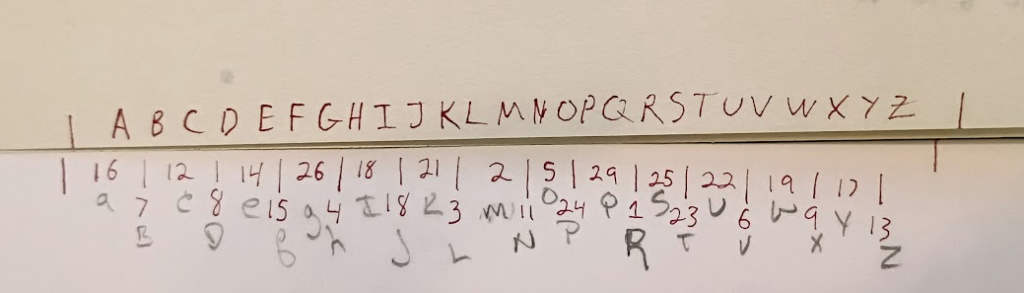 | A B C D E F G H I J K L M N O P Q R S T U V W X Y Z |
| 16 | 12 | 14 | 26 | 18 | 21 | 2 | 5 | 29 | 25 | 22 | 19 | 17 |
a 7 c 8 e 15 g 4 I 18 K 3 m 11 O 24 P 1 S 23 U 6 W 9 Y 13
B D f h J L N P R T V X Z